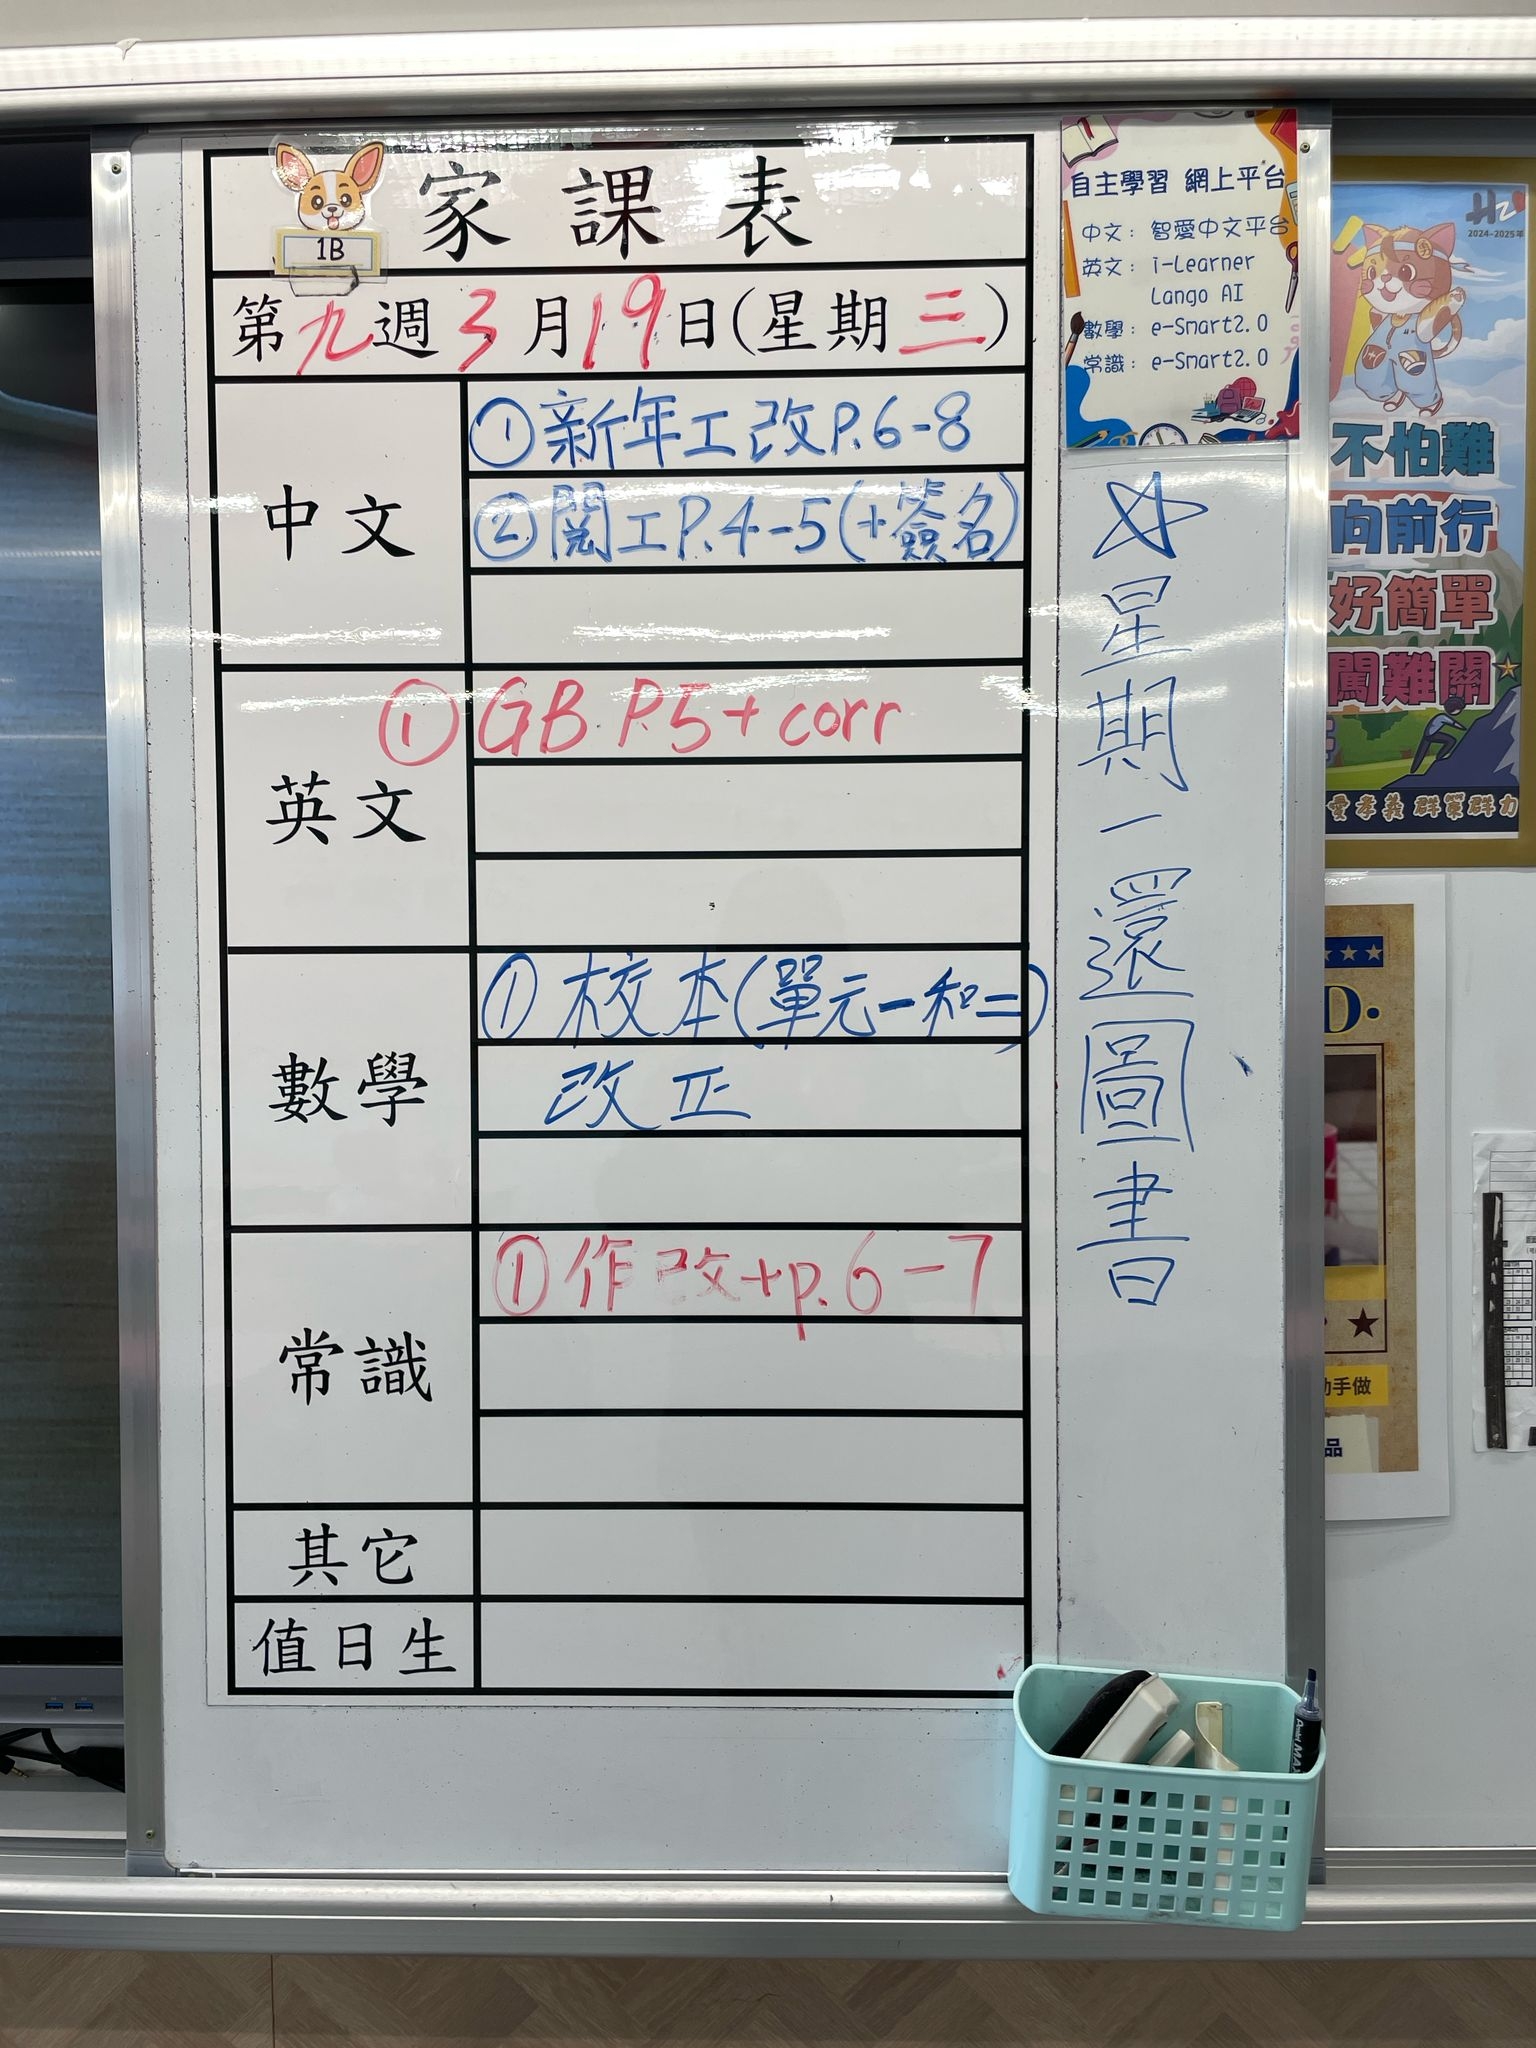 家課表
1B
第九週3月19日(星期三)
中文
①新年工改P.6-8
②閱工P.4-5(+簽名)
英文
①GB P.5+corr
數學
①校本(單元一和二)
改正
常識
①作改+p.6-7
其它
值日生
自主學習 網上平台
中文：智愛中文平台
英文：i-Learner
Lango AI
數學：e-Smart2.0
常識：e-Smart2.0
☆星期一還圖書
2024-2025年
不怕難
向前行
好簡單
闖難關
愛孝義 群策群力
D.
動手做
品